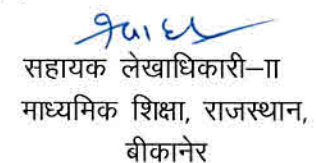 सहायक लेखाधिकारी–II
माध्यमिक शिक्षा, राजस्थान,
बीकानेर